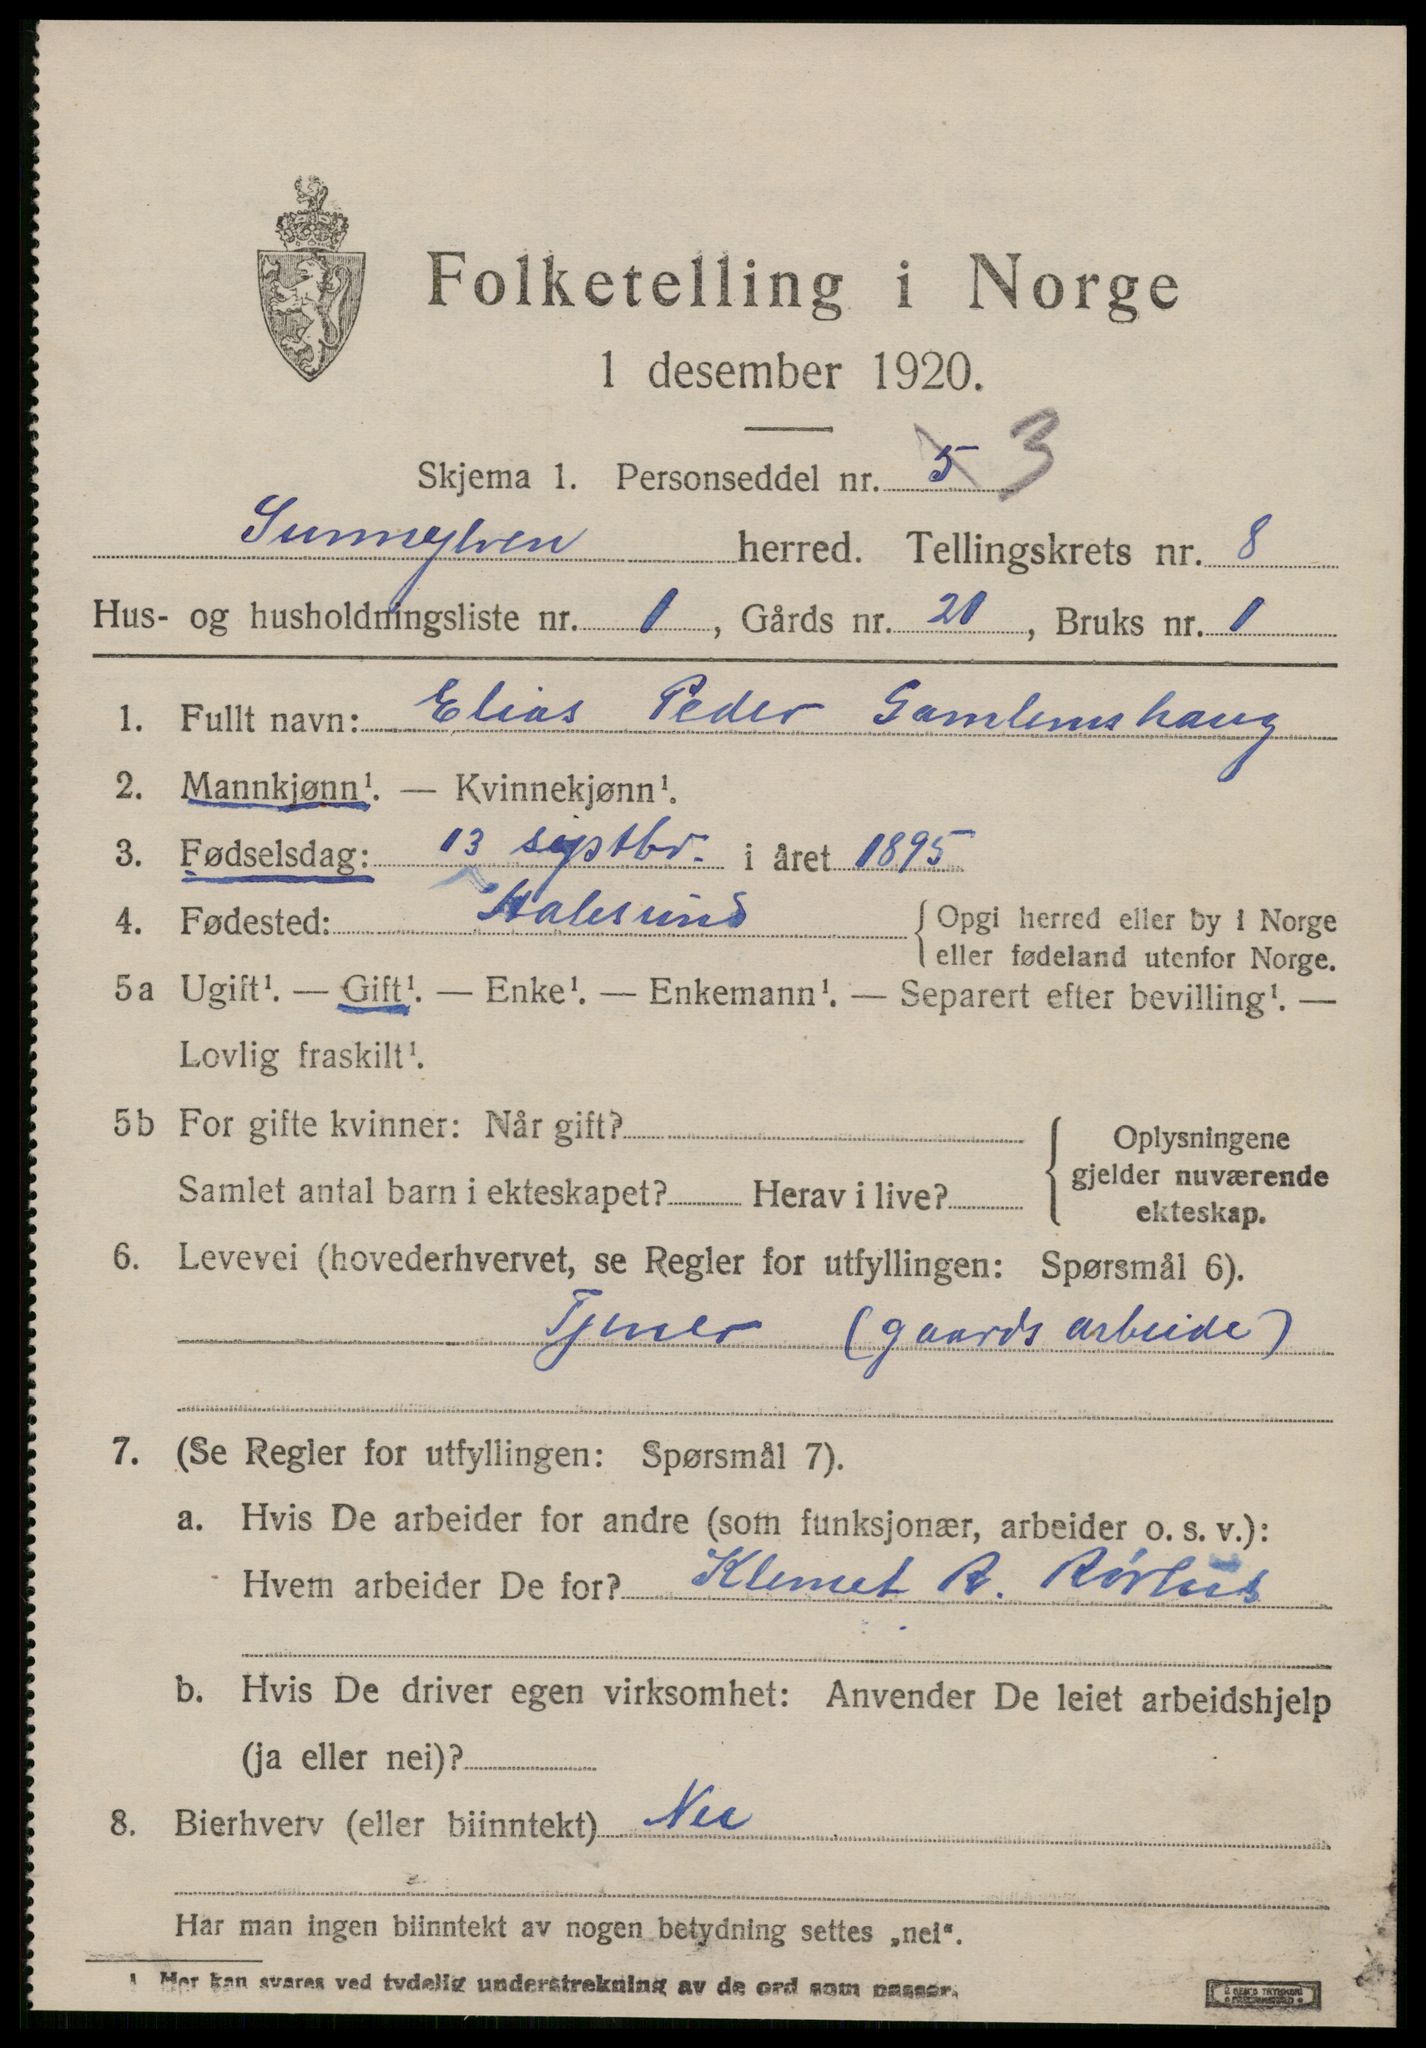 Folketelling i Norge
1 desember 1920.
Skjema 1. Personseddel nr. 5 3
Sunnylven herred. Tellingskrets nr. 8
Hus- og husholdningsliste nr. 1, Gårds nr. 21, Bruks nr. 1
1. Fullt navn: Elias Peder Gamlemshaug
2. Mannkjønn¹. — Kvinnekjønn¹.
3. Fødselsdag: 13 septbr. i året 1895
4. Fødested: Aalesund { Opgi herred eller by i Norge
eller fødeland utenfor Norge.
5a Ugift¹. — Gift¹. — Enke¹. — Enkemann¹. — Separert efter bevilling¹. —
Lovlig fraskilt¹.
5b For gifte kvinner: Når gift?
Samlet antal barn i ekteskapet? Herav i live?
{ Oplysningene
gjelder nuværende
ekteskap.
6. Levevei (hovederhvervet, se Regler for utfyllingen: Spørsmål 6).
Tjener (gaards arbeide)
7. (Se Regler for utfyllingen: Spørsmål 7).
a. Hvis De arbeider for andre (som funksjonær, arbeider o. s. v.):
Hvem arbeider De for? Klemet R. Rørhus
b. Hvis De driver egen virksomhet: Anvender De leiet arbeidshjelp
(ja eller nei)?
8. Bierhverv (eller biinntekt) Nei
Har man ingen biinntekt av nogen betydning settes „nei“.
1 Her kan svares ved tydelig understrekning av de ord som passer.